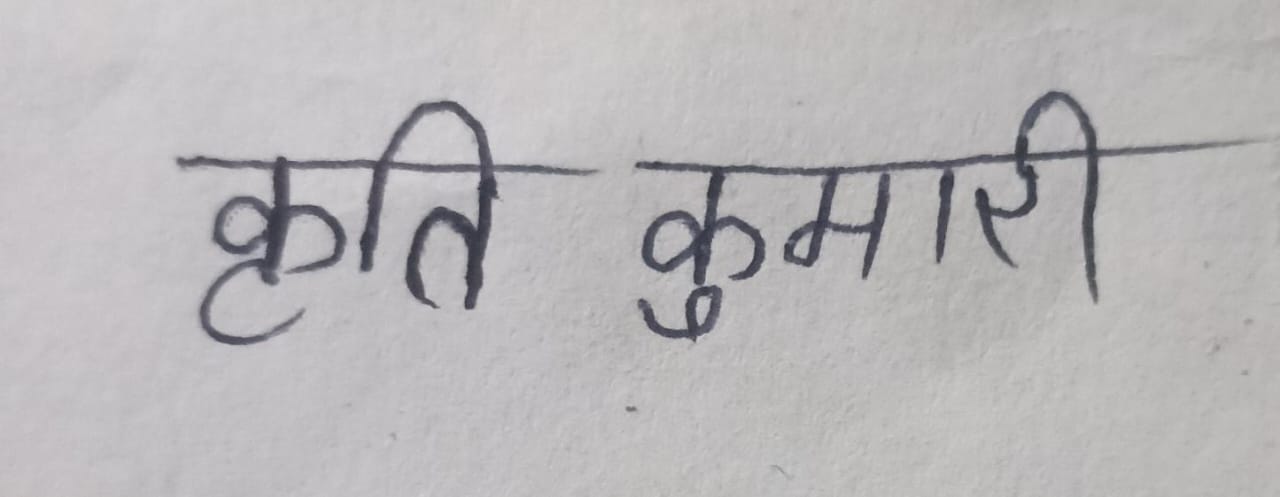 कृति कुमारी